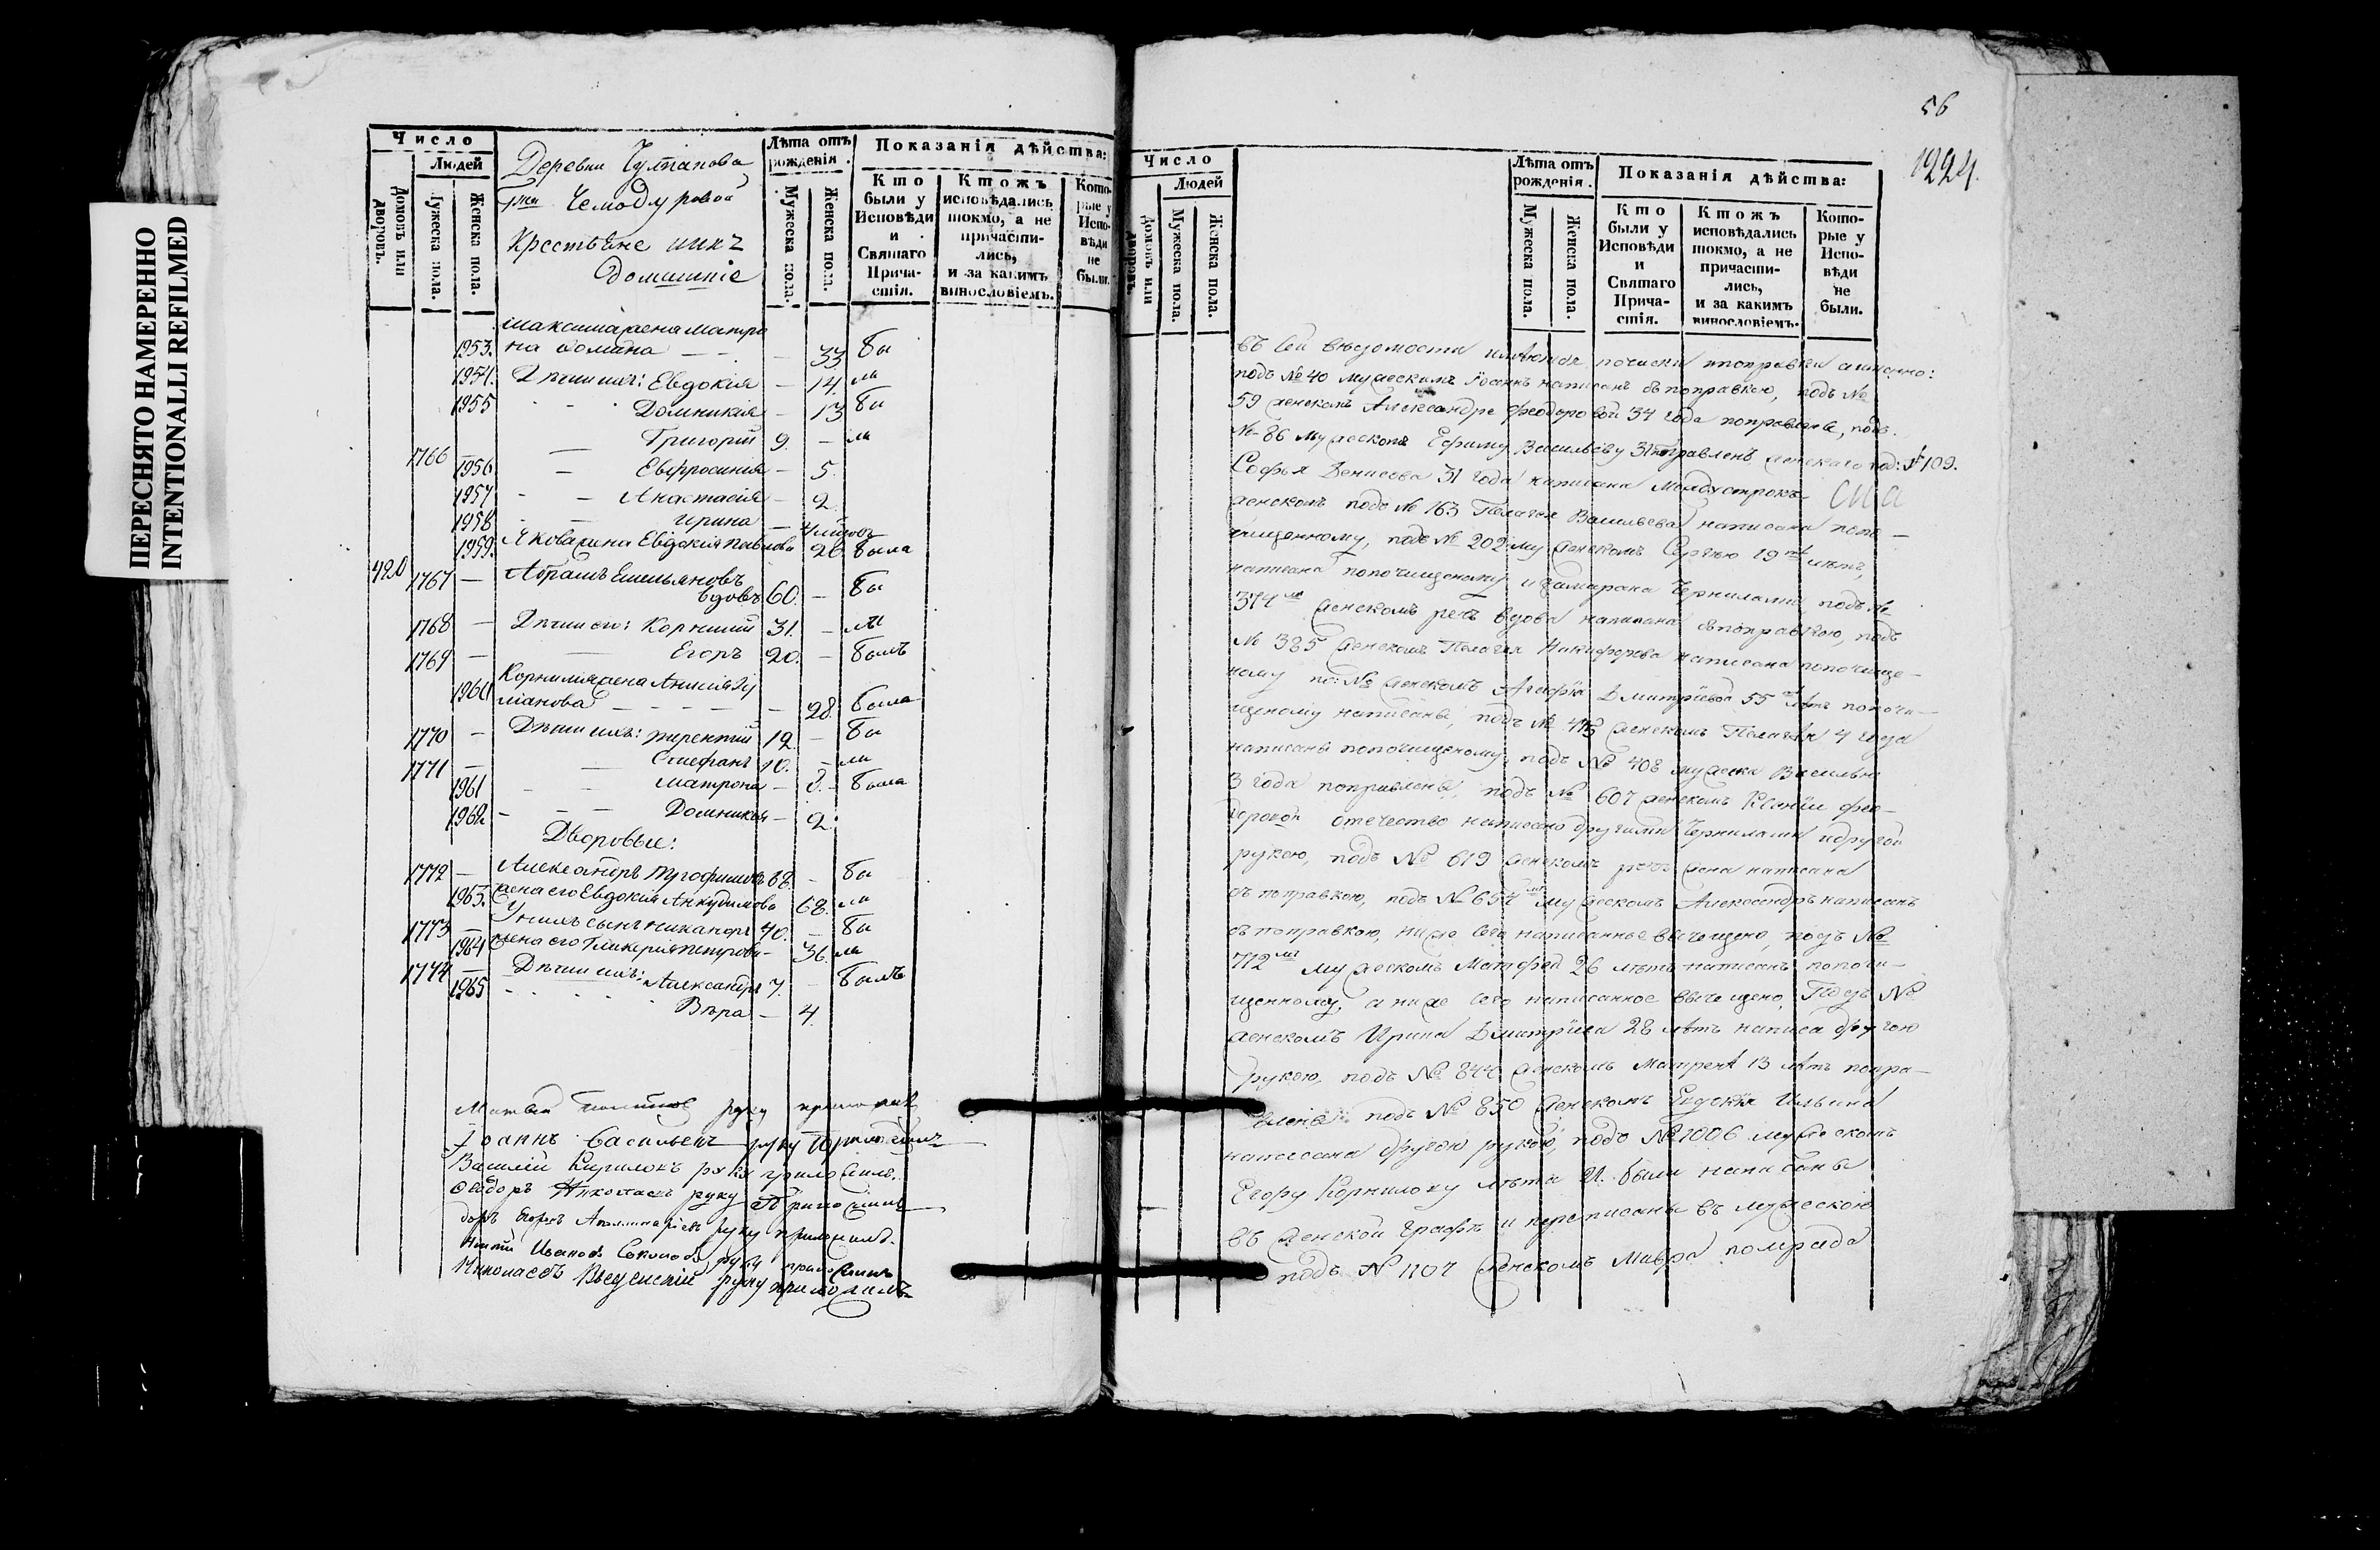 ПЕРЕСНЯТО НАМЕРЕННО
INTENTIONALLI REFILMED
Число
Людей
Домовъ или дворовъ.
Мужеска пола.
Женска пола.
Деревни
Чемодуровой
Крестьяне ихъ
домашніе
Лѣта отъ рожденія.
Мужеска пола.
Женска пола.
Показанія дѣйства:
Кто были у Исповѣди и Святаго Причастія.
Ктожъ исповѣдались токмо, а не причастились, и за какимъ винословіемъ.
Которые у Исповѣди не были.
Максима жена Матро
1953. на Фомина — 33 бы
1954. Дѣти ихъ: Евдокія — 14. ли
1955 Домникія — 13 бы
1766 — Григорій 9. — ли
1956 — Евфросинія — 5.
1957 — Анастасія — 2
1958 Ирина —
1959. Якова жена Евдокія Павлова 20 была
420 1767 — Абрамъ Емельяновъ
вдовъ 60. — бы
1768 — Дѣти его: Корнилій 31. — ли
1769 — Егоръ 20. — былъ
Корнилія жена Анисія
1960 — 28. была
1770 — Дѣти ихъ: Терентій 12. — бы
1771 — Стефанъ 10. — ли
1961 — Матрона — 8. — была
1962 — Домникія — 2.
Дворовые:
1772 — Александръ Трофимовъ — бы
1963. жена его Евдокія Анкудимова 68. ли
1773 — У нихъ сынъ Никаноръ 40. — бы
1964 жена его Гликерія Петрова — 36. ли
1774 — Дѣти ихъ: Александръ 7. — былъ
1965 Вѣра — 4.
руку приложилъ
Іоаннъ Васильевъ руку приложилъ
Василій Кириловъ руку приложилъ.
Феодоръ Николаевъ руку приложилъ
руку приложилъ.
Иванов Соколовъ руку приложилъ
Николаевъ Введенскій руку приложилъ
56
1224.
Число
Людей
Домовъ или дворовъ.
Мужеска пола.
Женска пола.
Лѣта отъ рожденія.
Мужеска пола.
Женска пола.
Показанія дѣйства:
Кто были у Исповѣди и Святаго Причастія.
Ктожъ исповѣдались токмо, а не причастились, и за какимъ винословіемъ.
Которые у Исповѣди не были.
Въ сей вѣдомости имѣются почистки и поправки а именно:
подъ № 40 мужескимъ Іоаннъ написанъ съ поправкою, подъ №
59 женскомъ Александре Феодоровой 34 года поправлено, подъ
№ 86 мужескомъ Ефиму Васильеву 31 поправленъ женскаго под: № 109.
Софья Денисова 31 года написана междустрокъ
женскомъ подъ № 163 Пелагея Васильева написана попо-
чищенному, подъ № 202 мужескомъ Сергѣю 19 лѣтъ,
написано попочищеному и замарана чернилами подъ №
374 женскомъ речь вдова написана съ поправкою, подъ
№ 385 женскомъ Пелагея Никифорова написана попочище-
ному по: № женскомъ Агафія Дмитріева 55 лѣтъ попочи-
щеному написаны, подъ № женскомъ Пелагѣя 4 года
написаны попочищеному, подъ № 408 мужеска Василью
3 года поправлены, подъ № 607 женскомъ Ксеніи Фео-
доровой отечество написано другими чернилами и другой
рукою, подъ № 619 женскомъ речь жена написана
съ поправкою, подъ № 654 мужескомъ Александръ написанъ
съ поправкою, ниже сего написанное вычещено, подъ №
712 мужескомъ Матфей 26 лѣтъ написанъ попочи-
щенному, а ниже сего написанное вычещено, Подъ №
женскомъ Ирина Дмитріева 28 лѣтъ написа другою
рукою, подъ № 844 женскомъ Матренѣ 13 лѣтъ попра-
влены подъ № 850 женскомъ Евдокія Ильина
написана другою рукою, подъ № 1006 мужескомъ
Егору Корнилову лѣта 21. были написаны
въ женской графѣ и переписаны въ мужескою
подъ № 1107 женскомъ Мавра